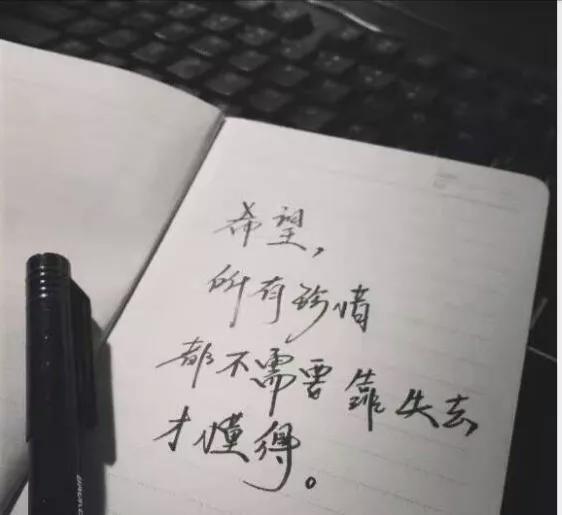 希望，
所有珍惜
都不需要靠失去
才懂得。